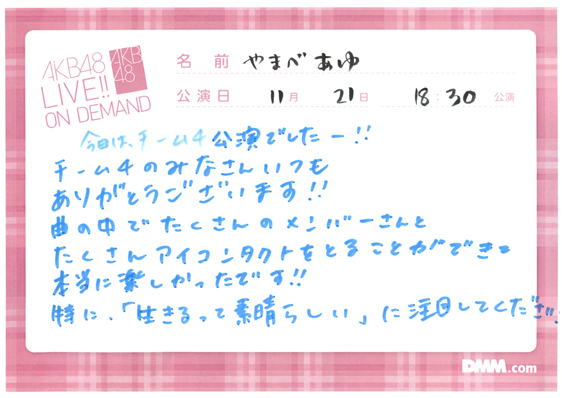 AKB48
LIVE!!
ON DEMAND
AKB
48
名前 やまべ あゆ
公演日 11月 21日 18:30 公演
今日は、チーム4公演でしたー!!
チーム4のみなさんいつも
ありがとうございます!!
曲の中でたくさんのメンバーさんと
たくさんアイコンタクトをとることができて
本当に楽しかったです!!
特に、「生きるって素晴らしい」に注目してくださ
DMM.com